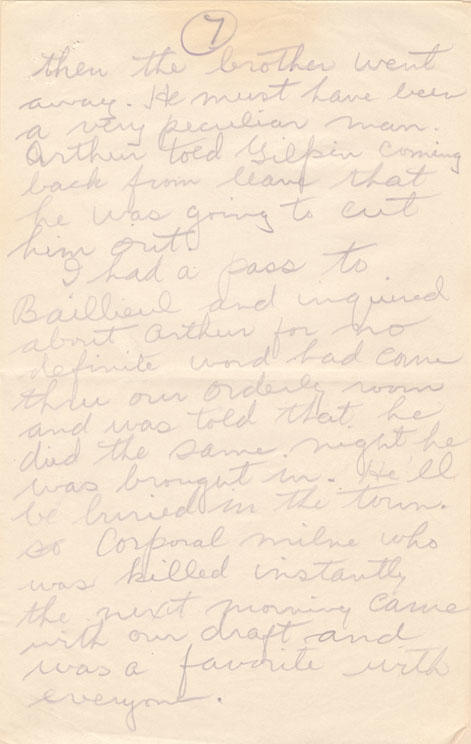 7
then the brother went
away. He must have been
a very peculiar man.
Arthur told Gilpin coming
back from leave that
he was going to cut
him out.
I had a pass to
Baillieul and inquired
about Arthur for no
definite word had come
thru our orderly room
and was told that he
died the same night he
was brought in. He'll
be buried in the town.
so Corporal Milne who
was killed instantly
the next morning came
with our draft and
was a favorite with
everyone.